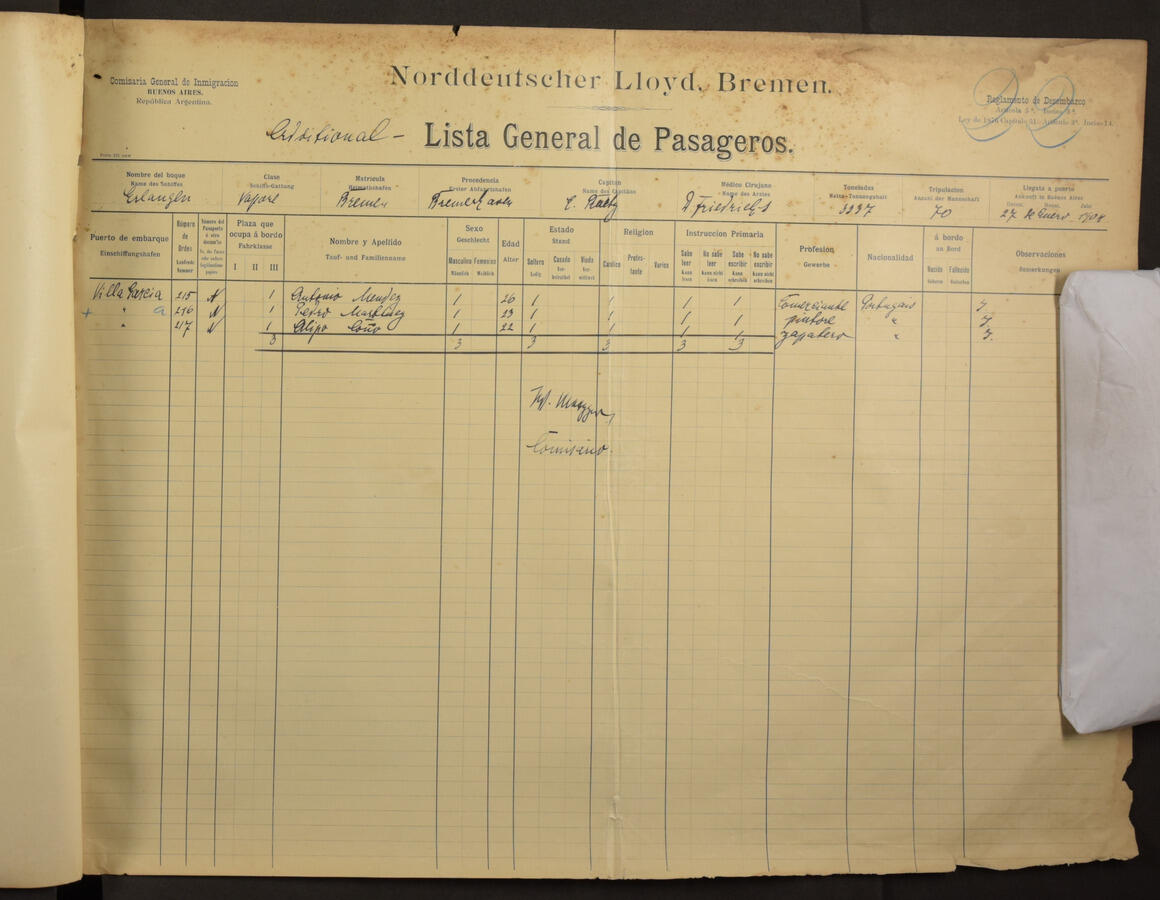 Norddeutscher Lloyd, Bremen.
Comisaria General de Inmigracion
BUENOS AIRES.
República Argentina.
22
Reglamento de Desembarco
Articulo 5º. Inciso 3º.
Ley de 1876 Capítulo 51. Artículo 3º. Inciso 14.
Additional - Lista General de Pasageros.
Nombre del buque Clase Matricula Procedencia Capitan Médico Cirujano Toneladas Tripulacion Llegata a puerto
Name des Schiffes Schiffs-Gattung Heimathshafen Erster Abfahrtshafen Name des Capitäns Name des Arztes Netto-Tonnengehalt Anzahl der Mannschaft Ankunft in Buenos Aires
Erlangen Vapore Bremen Bremerhaven D Friedrichs 3337 70 27 de Enero 1908
Puerto de embarque Número de Orden Plaza que ocupa á bordo Nombre y Apellido Sexo Edad Estado Religion Instruccion Primaria Profesion Nacionalidad á bordo Observaciones
Einschiffungshafen Laufende Nummer Fahrklasse Tauf- und Familienname Geschlecht Alter Stand Gewerbe an Bord Bemerkungen
I II III Masculino Femenino Soltero Casado Viudo Catolico Protes- Varios Sabe leer No sabe leer Sabe escribir No sabe escribir Nacido Fallecido
Männlich Weiblich Ledig Kann lesen Kann nicht lesen Kann schreiben Kann nicht schreiben Geboren Gestorben
Villa Garcia 215 N 1 Antonio Mendez 1 26 1 1 1 1 Comerciante Portugais
+ " a 216 N 1 Pedro 1 23 1 1 1 1 pintore "
" 217 N 1 Alipo 1 22 1 1 1 1 zapatero "
3 3 3 3 3 3
Comisario.